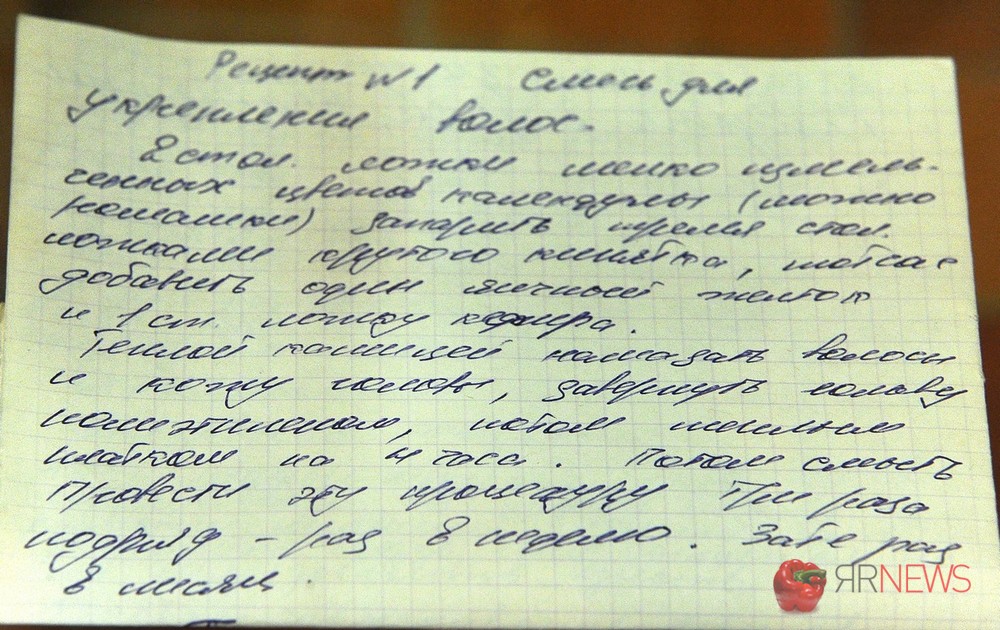 Рецепт №1 Смесь для
укрепления волос.
2 стол. ложки мелко измель-
ченных цветов календулы (можно
ромашки) запарить тремя стол.
ложками крутого кипятка, тотчас
добавить один яичный желток
и 1 ст. ложку кефира.
Теплой кашицей намазать волосы
и кожу головы, завернуть голову
полиэтиленом, потом теплым
платком на 4 часа. Потом смыть
Провести эту процедуру три раза
подряд - раз в неделю. Зате раз
в месяц
ЯRNEWS